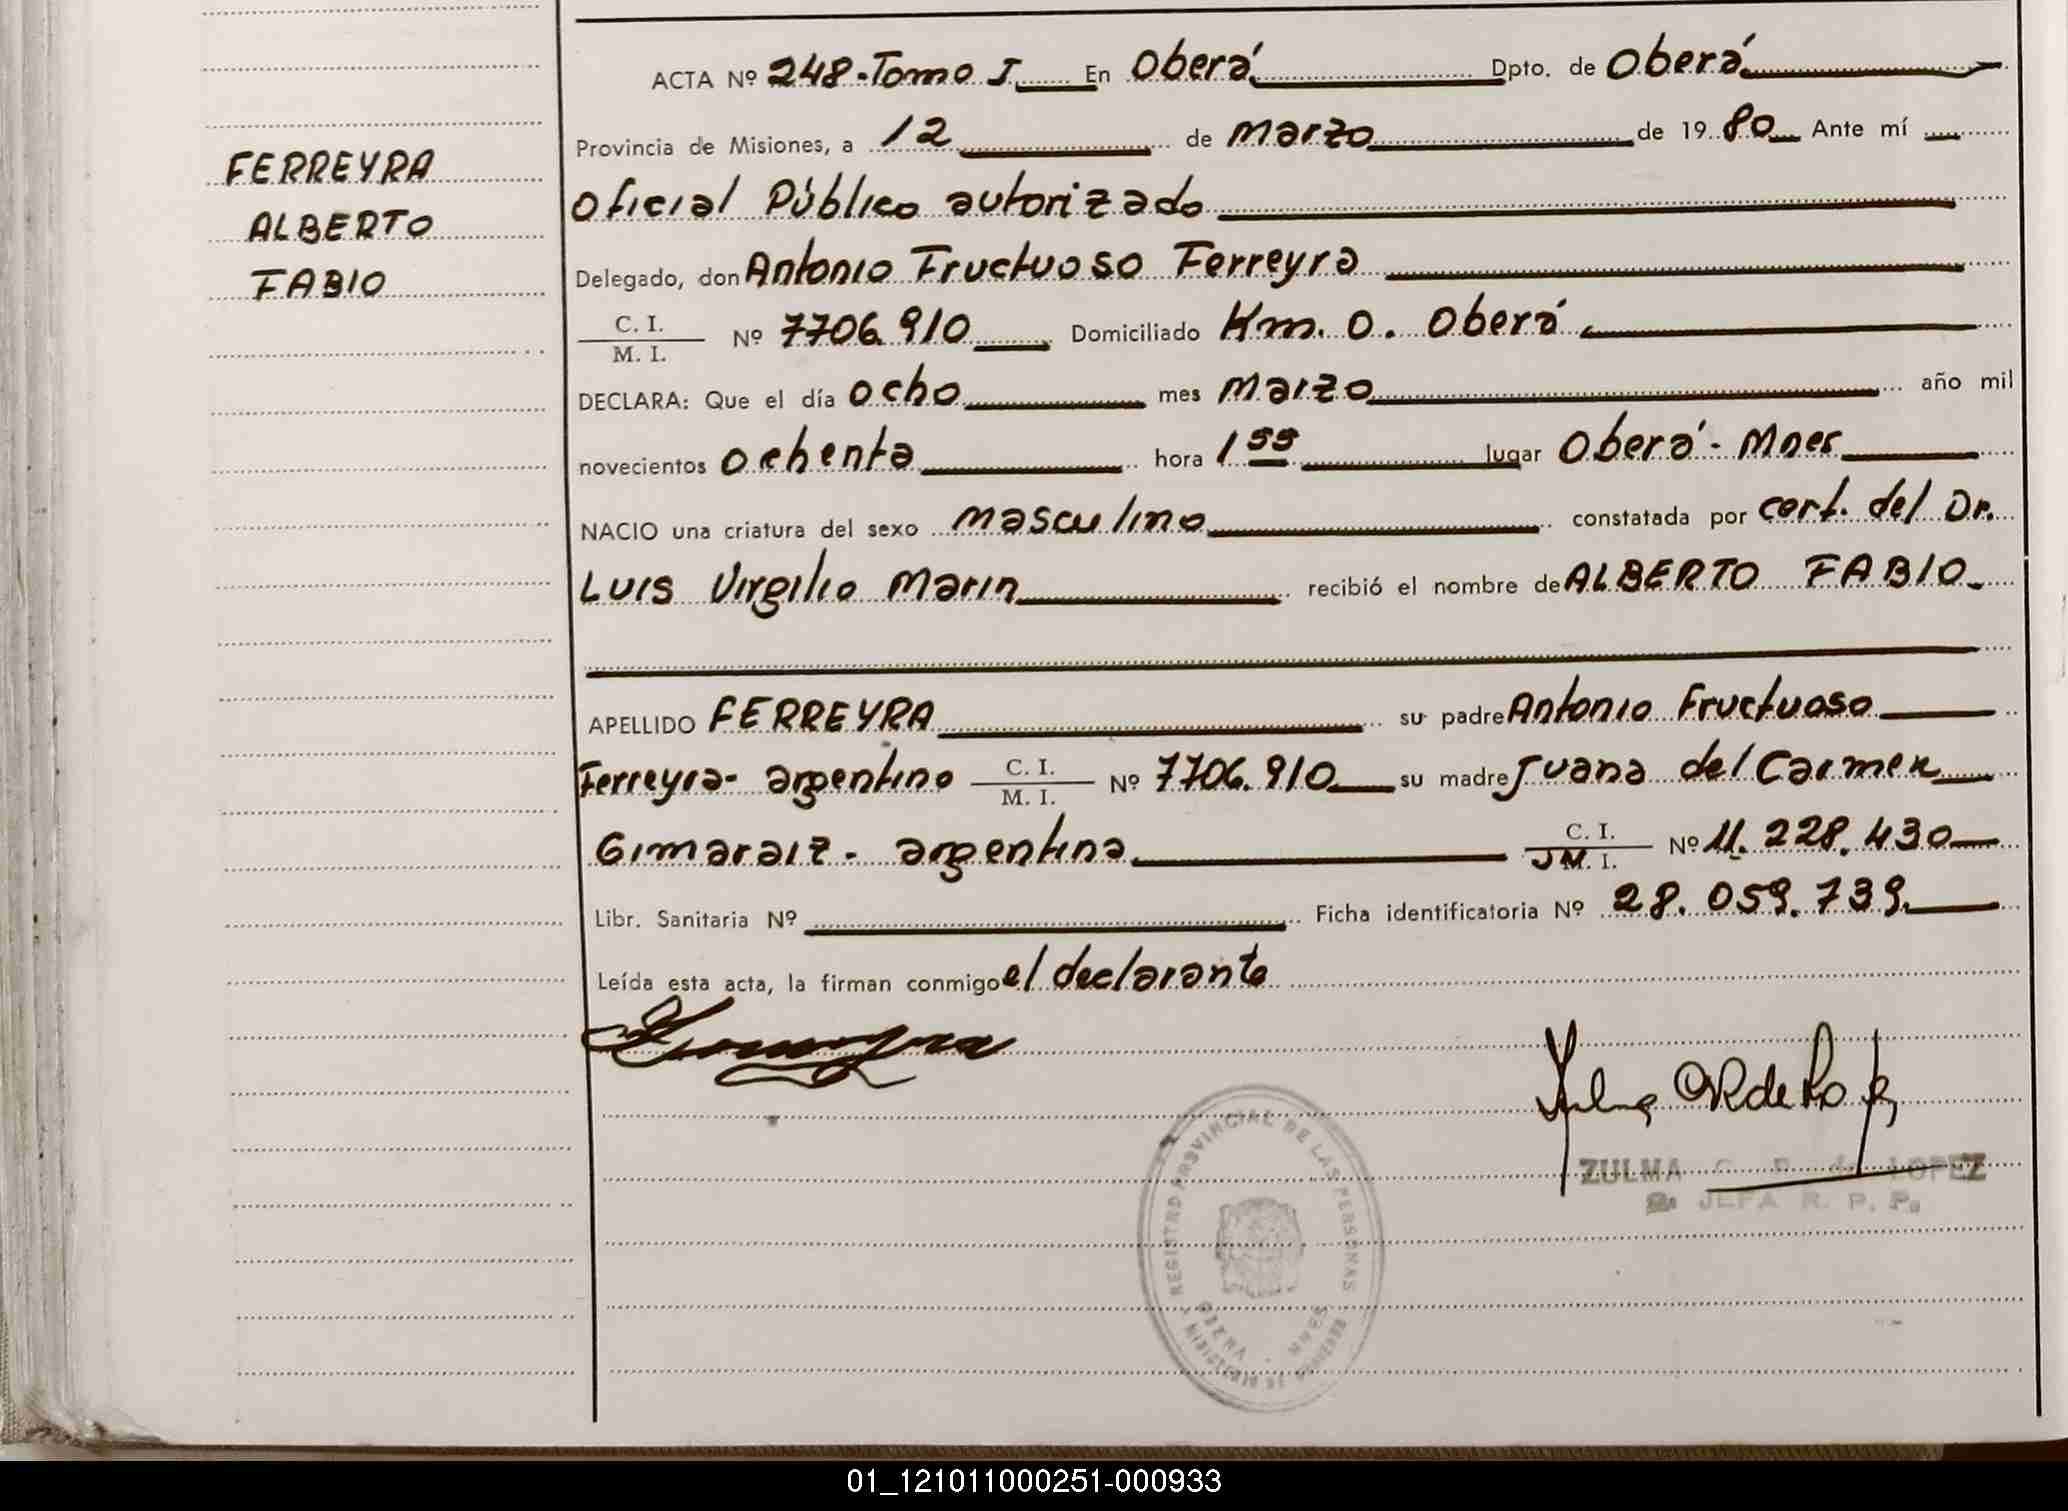 FERREYRA
ALBERTO
FABIO
ACTA Nº 248-Tomo I En Oberá Dpto. de Oberá
Provincia de Misiones, a 12 de Marzo de 1980 Ante mí
Oficial Público autorizado
Delegado, don Antonio Fructuoso Ferreyra
C. I.
M. I. Nº 7706.910 Domiciliado Km. 0. Oberá
DECLARA: Que el día ocho mes Marzo año mil
novecientos ochenta hora 1 55 lugar Oberá - Mnes
NACIO una criatura del sexo masculino constatada por cert. del Dr.
Luis Virgilio Marin recibió el nombre de ALBERTO FABIO
APELLIDO FERREYRA su padre Antonio Fructuoso
Ferreyra - argentino C. I. M. I. Nº 7706.910 su madre Juana del Carmen
Gimaraiz - argentina C. I. M. I. Nº 11.228.430
Libr. Sanitaria Nº Ficha identificatoria Nº 28.059.739.
Leída esta acta, la firman conmigo el declarante
REGISTRO PROVINCIAL DE LAS PERSONAS
ZULMA de LOPEZ
JEFA R. P. P.
01_121011000251-000933